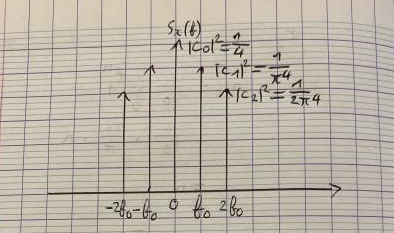 Sx(f)
|C0|² = 1/4
|C1|² = 1/π4
|C2|² = 1/2π4
-2f0 -f0 0 f0 2f0